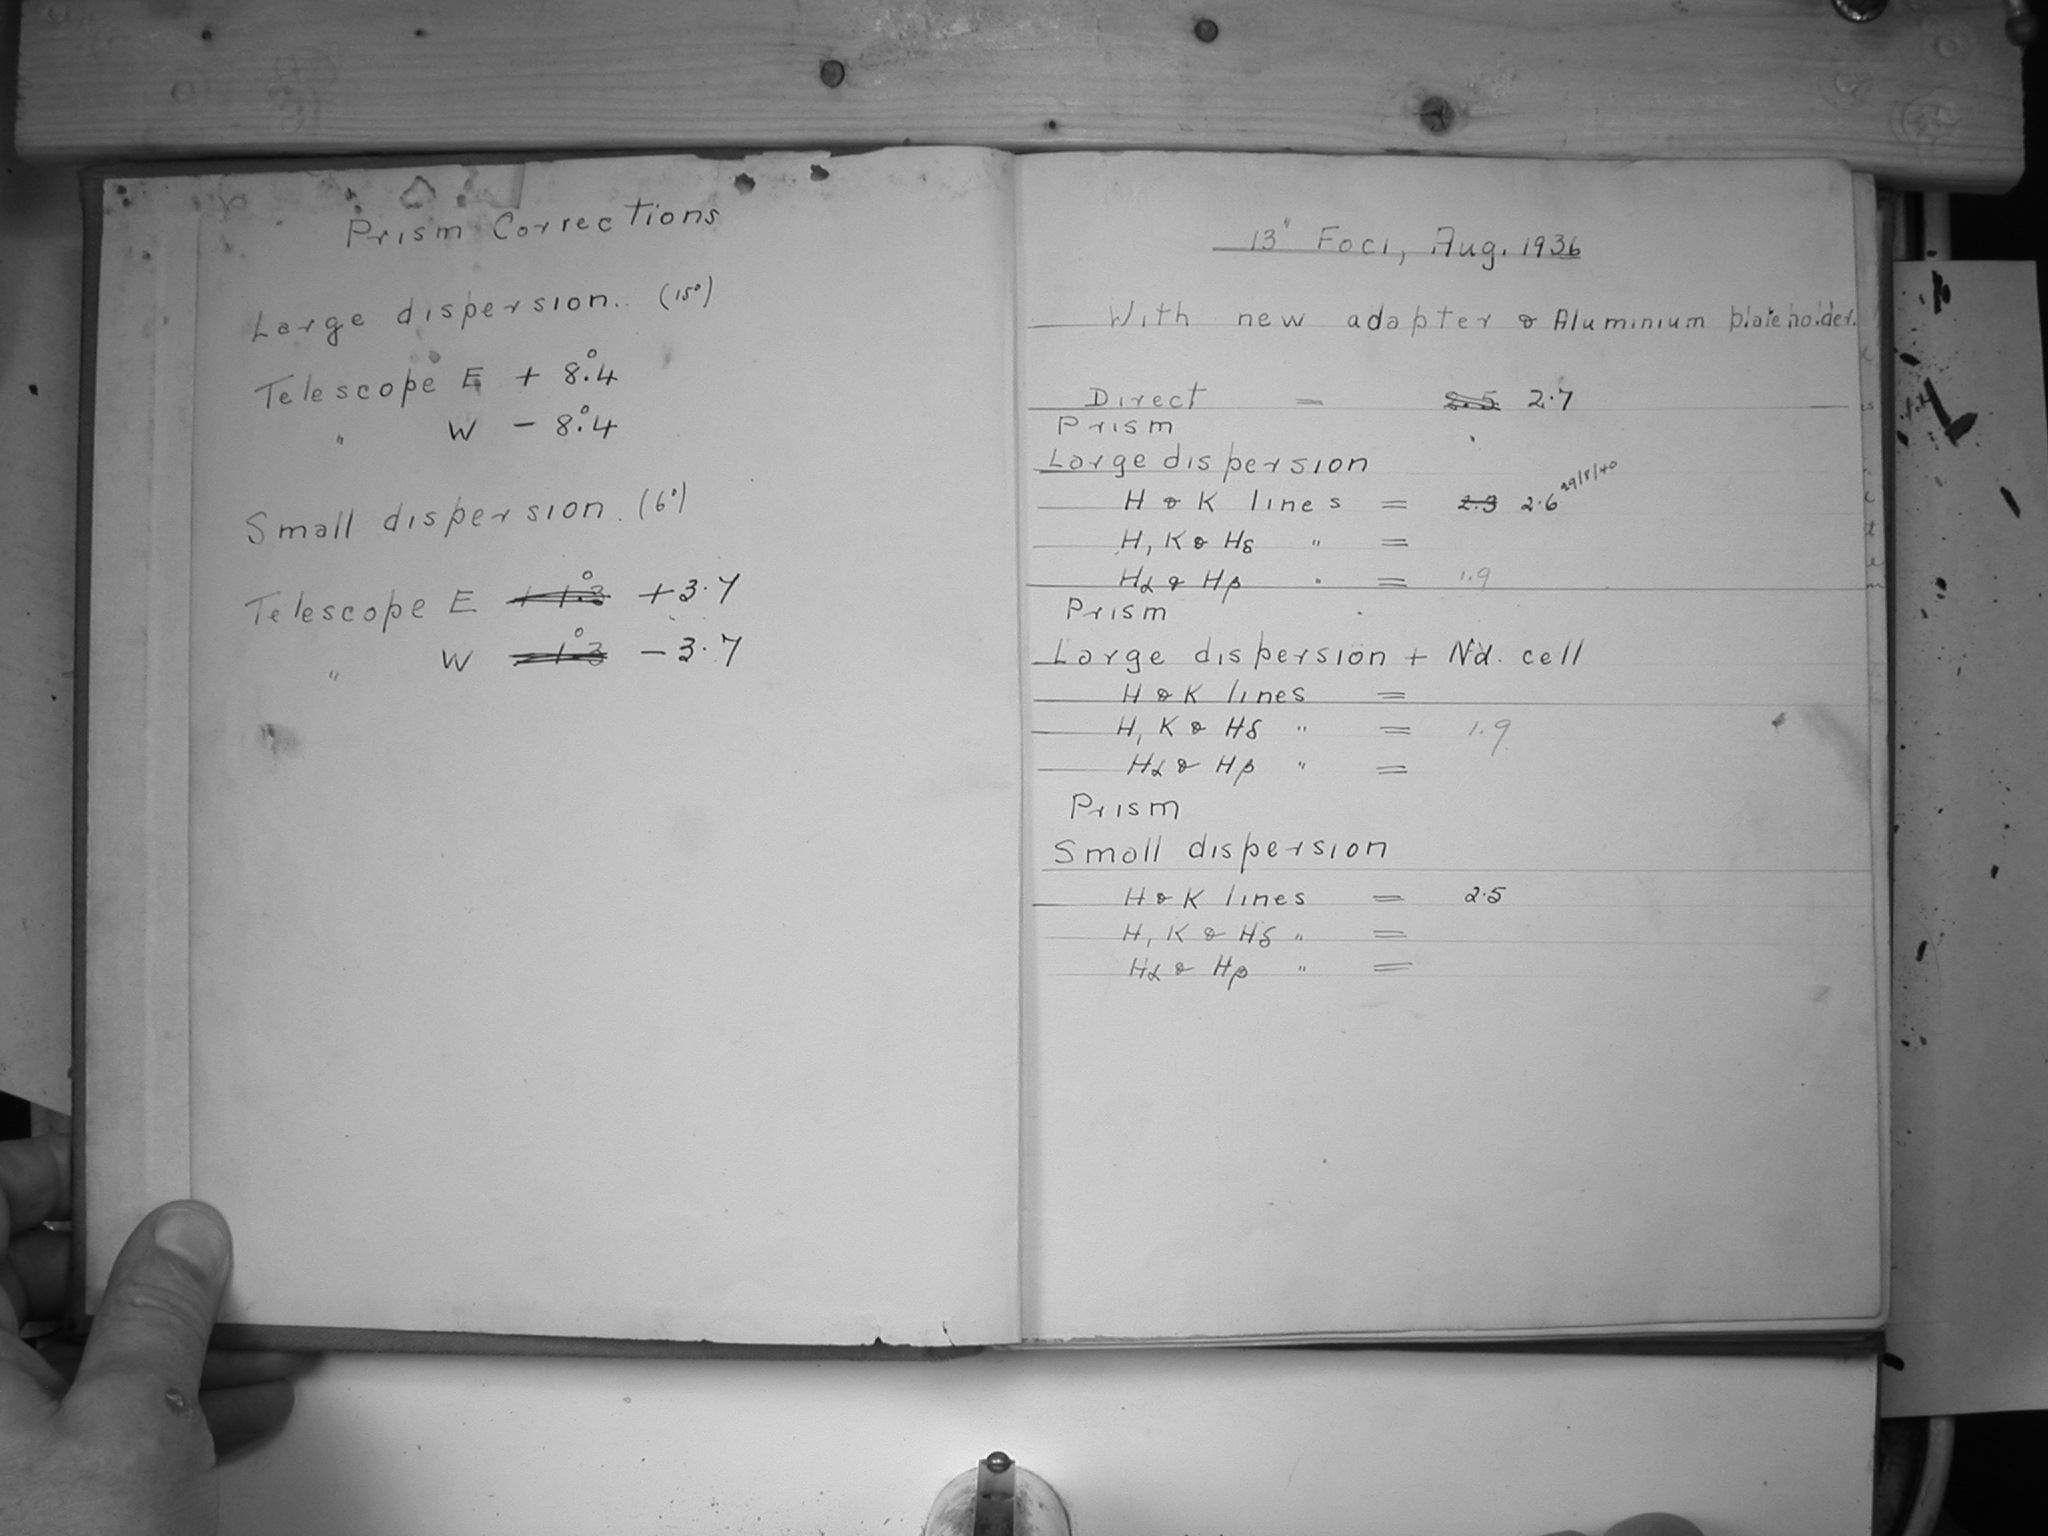 Prism Corrections
Large dispersion.. (15°)
Telescope E + 8°.4
" W - 8°.4
Small dispersion. (6°)
Telescope E + 1°.3 +3.7
" W - 1°.3 -3.7
13" Foci, Aug. 1936
With new adapter & Aluminium plateholder.
Direct = 2.5 2.7
Prism
Large dispersion
H & K lines = 2.3 2.6 29/8/40
H, K & Hδ " =
Hα & Hβ " = 1.9
Prism
Large dispersion + Nd. cell
H & K lines =
H, K & Hδ " = 1.9
Hα & Hβ " =
Prism
Small dispersion
H & K lines = 2.5
H, K & Hδ " =
Hα & Hβ " =